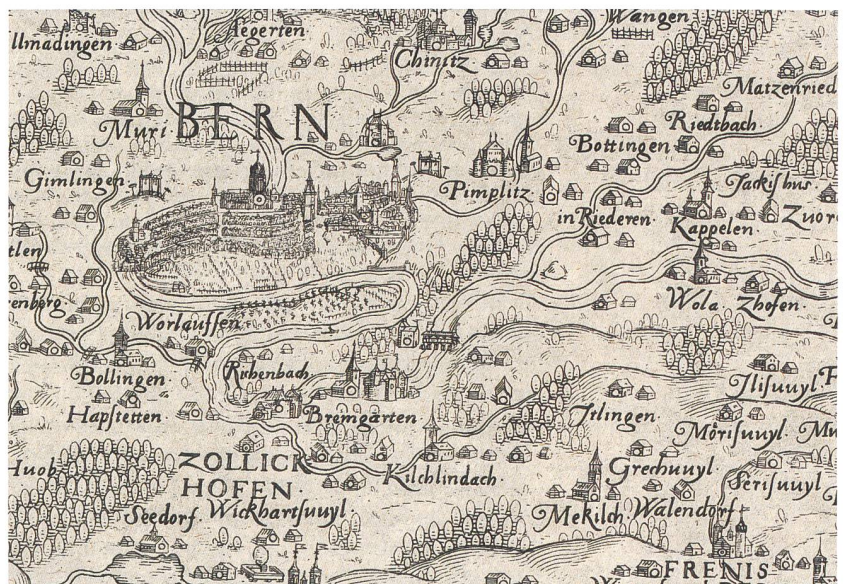 Wangen
Aegerten
llmadingen
Chinitz
Matzenried
BERN
Muri
Riedtbach
Bottingen
Gimlingen
Pimplitz
Jackishus
in Riederen
Zuor
Kappelen
tlen
renberg
Wola
Zhofen
Worlauffen
Bollingen
Richenbach
Ilisuuyl
F
Hapstetten
Bremgarten
Irlingen
Mörisuuyl
Mu
Huob
ZOLLICK
HOFEN
Kilchlindach
Grechuuyl
Serisuuyl
Seedorf
Wickhartsuuyl
Mekilch
Walendorf
FRENIS